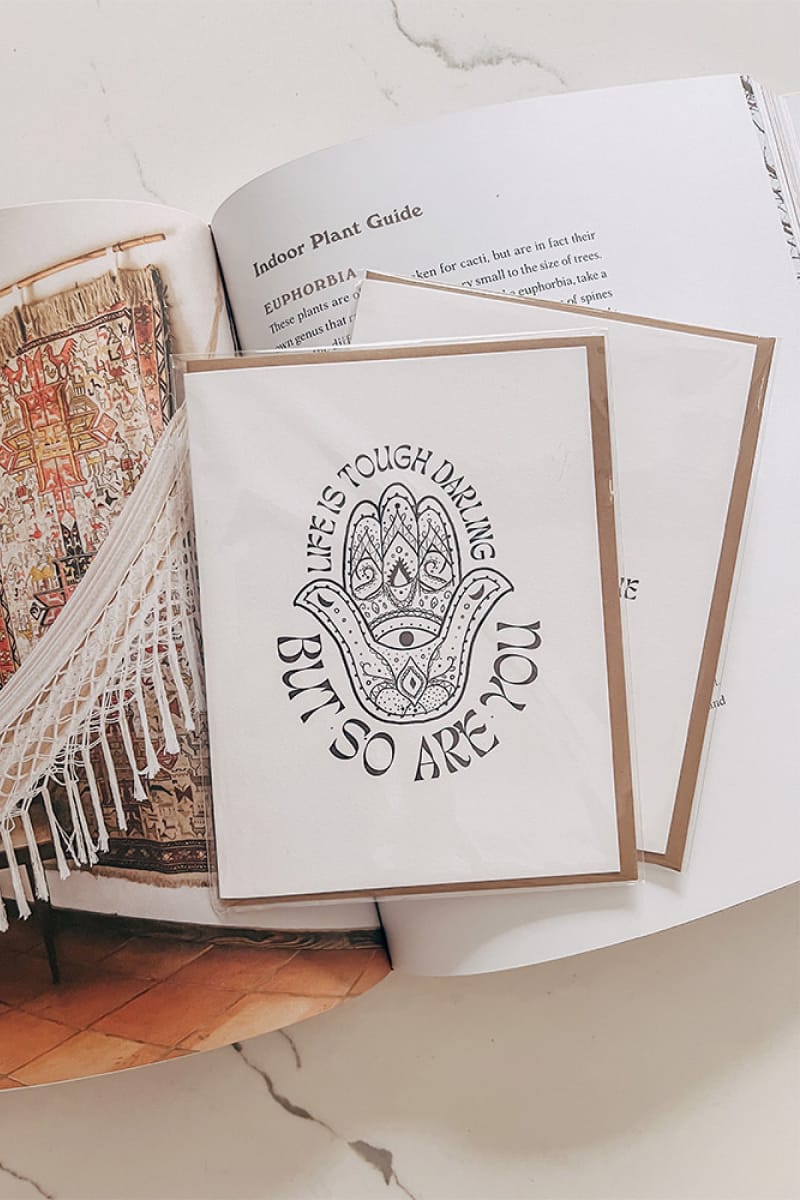 Indoor Plant Guide
EUPHORBIA
These plants are ken for cacti, but are in fact their
own genus that ry small to the size of trees.
euphorbia, take a
of spines
LIFE IS TOUGH DARLING
BUT · SO ARE · YOU
nd